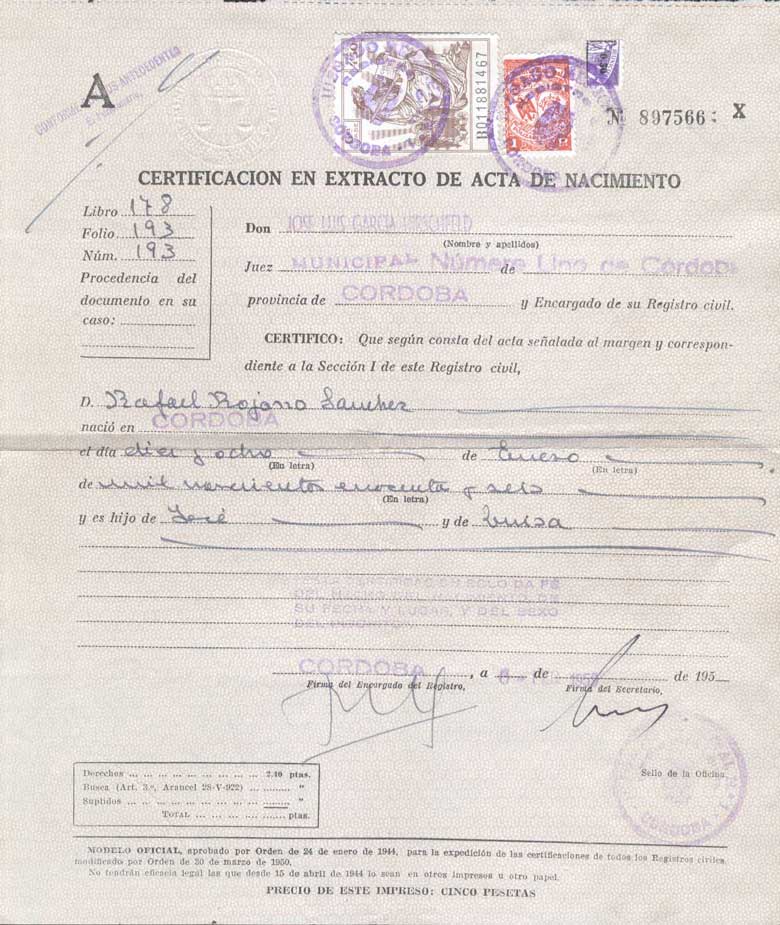 A
CONFORME ANTECEDENTES
B011881467
1
Nº 897566: X
CERTIFICACION EN EXTRACTO DE ACTA DE NACIMIENTO
Libro 178
Folio 193
Núm. 193
Procedencia del
documento en su
caso:
Don JOSE LUIS GARCIA HIRSCHFELD
(Nombre y apellidos)
Juez MUNICIPAL Número Uno de Córdoba de
provincia de CORDOBA y Encargado de su Registro civil.
CERTIFICO: Que según consta del acta señalada al margen y correspon-
diente a la Sección I de este Registro civil,
D. Rafael Rojano Sanchez
nació en CORDOBA
el día diez y ocho de Enero
(En letra) (En letra)
de mil novecientos cincuenta y seis
(En letra)
y es hijo de José y de Luisa
SOLO DA FE
DEL HECHO DEL NACIMIENTO DE
SU FECHA Y LUGAR, Y DEL SEXO
DEL INSCRITO
CORDOBA, a 6 de de 195
Firma del Encargado del Registro, Firma del Secretario,
Sello de la Oficina
CORDOBA
Derechos ... 2.40 ptas.
Busca (Art. 3.º, Arancel 28-V-922) ... "
Suplidos ... "
TOTAL ... ptas.
MODELO OFICIAL, aprobado por Orden de 24 de enero de 1944, para la expedición de las certificaciones de todos los Registros civiles,
modificado por Orden de 30 de marzo de 1950.
No tendrán eficacia legal las que desde 15 de abril de 1944 lo sean en otros impresos u otro papel.
PRECIO DE ESTE IMPRESO: CINCO PESETAS